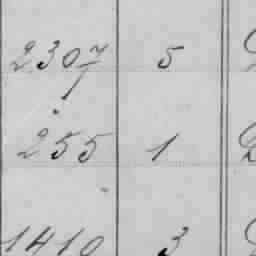 2307 5
255 1
1410 3